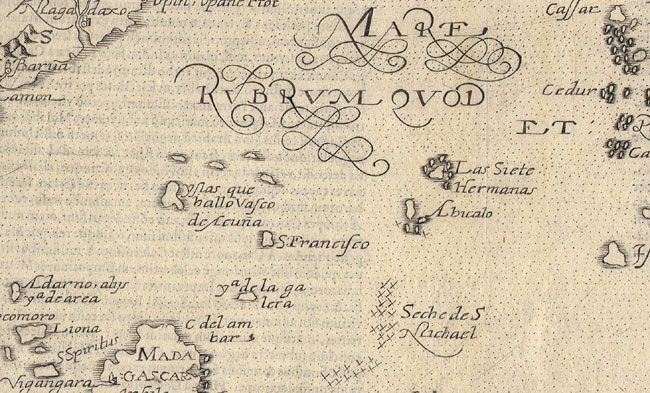 Magadaxo
MARE,
Cassar
Barua
Lamon
RVBRVM QVOD
Cedur
ET
Las Siete
Hermanas
yslas que
hallo Vasco
de Acuña
Abucalo
S. Francisco
Adarno, alijs
yª de area
yª de la ga
lera
comoro
Liona
C del am
bar
Seche de S
Michael
S Spiritus
MADA
GASCAR
Vigangara
Insula